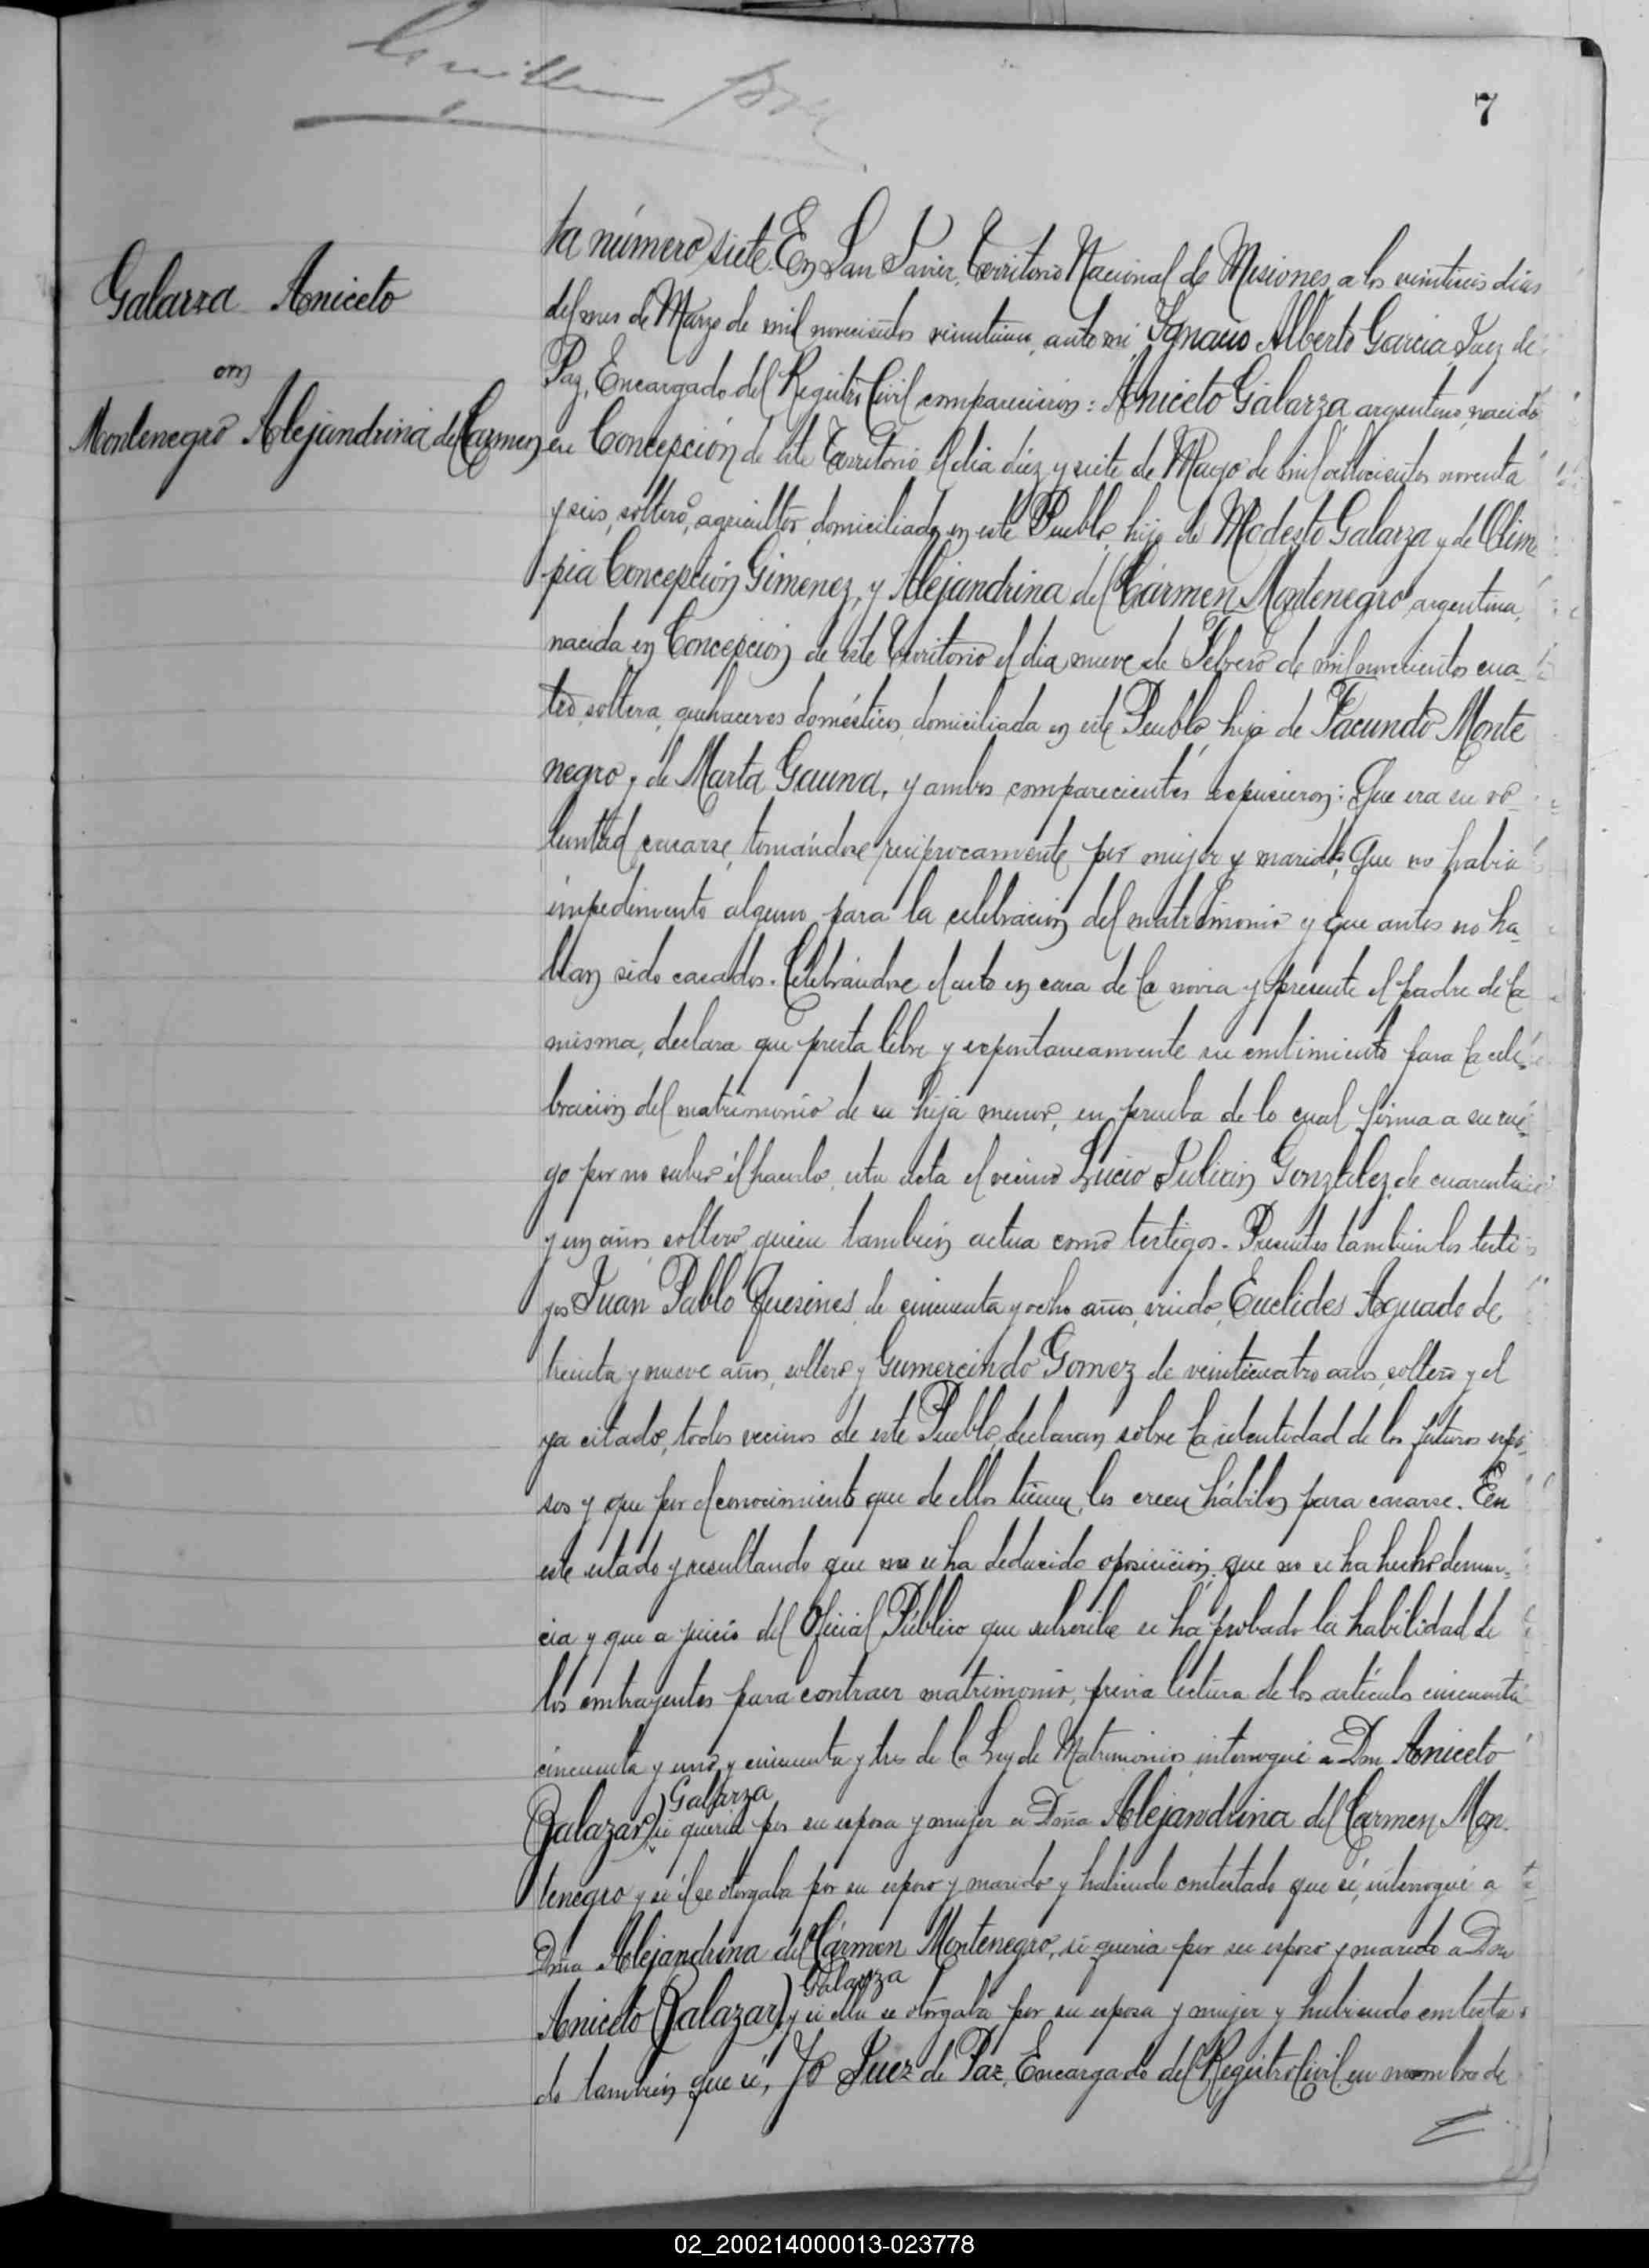 7
Galarza Aniceto
con
Montenegro Alejandrina del Carmen
ta número siete. En San Javier, Territorio Nacional de Misiones, a los veintiseis dias
del mes de Marzo de mil novecientos, ante mi Ignacio Alberto Garcia, Juez de
Paz, Encargado del Registro Civil comparecieron: Aniceto Galarza, argentino, nacido
en Concepción de este Territorio el dia diez y siete de Mayo de mil ochocientos noventa
y seis, soltero, agricultor, domiciliado en este Pueblo, hijo de Modesto Galarza y de Olim
pia Concepción Gimenez, y Alejandrina del Cármen Montenegro, argentina,
nacida en Concepción de este Territorio el dia nueve de Febrero de mil novecientos cua-
tro, soltera, quehaceres domésticos, domiciliada en este Pueblo, hija de Facundo Monte
negro y de Marta Gauna, y ambos comparecientes expusieron: Que era su vo-
luntad casarse, tomándose reciprocamente por mujer y marido; Que no habia
impedimento alguno para la celebración del matrimonio y que antes no ha-
bian sido casados. Celebrándose el acto en casa de la novia y presente el padre de la
misma, declara que presta libre y expontaneamente su consentimiento para la cele-
bración del matrimonio de su hija menor, en prueba de lo cual firma a su rue-
go por no saber él hacerlo, esta acta el vecino Lucio Julian Gonzalez, de cuarenta
y un años, soltero, quien también actua como testigos. Presentes tambien los testi-
gos Juan Pablo, de cincuenta y ocho años, viudo, Euclides Aguado de
treinta y nueve años, soltero y Gumercindo Gomez de veinticuatro años, soltero y el
ya citado, todos vecinos de este Pueblo, declaran sobre la identidad de los futuros espo-
sos y que por el conocimiento que de ellos tienen, los creen hábiles para casarse. En
este estado y resultando que no se ha deducido oposición, que no se ha hecho denun-
cia y que a juicio del Oficial Público que subscribe se ha probado la habilidad de
los contrayentes para contraer matrimonio, previa lectura de los artículos cincuenta
cincuenta y uno y cincuenta y tres de la Ley de Matrimonio, interrogué a Don Aniceto
Galarza
(Salazar) si queria por su esposa y mujer a Doña Alejandrina del Carmen Mon-
tenegro y si él se otorgaba por su esposo y marido y habiendo contestado que si, interrogué a
Doña Alejandrina del Cármen Montenegro, si queria por su esposo y marido a Don
Galarza
Aniceto (Salazar) y si ella se otorgaba por su esposa y mujer y habiendo contesta
do también que si, Yo Juez de Paz, Encargado del Registro Civil en nombre de
02_200214000013-023778